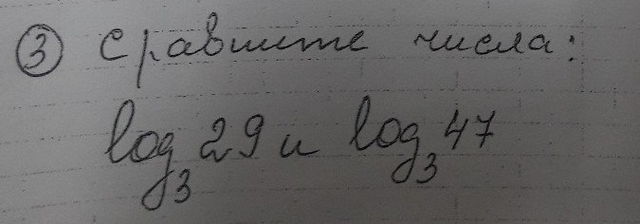 ③ Сравните числа:
log₃29 и log₃47